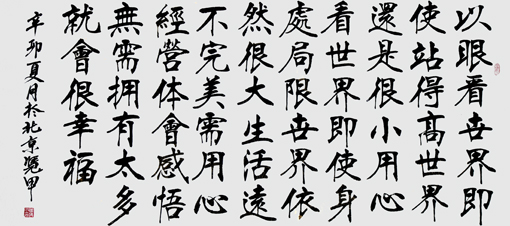 以眼看世界即
使站得高世界
還是很小用心
看世界即使身
處局限世界依
然很大生活遠
不完美需用心
經營体會感悟
無需拥有太多
就會很幸福
辛卯夏月於北京